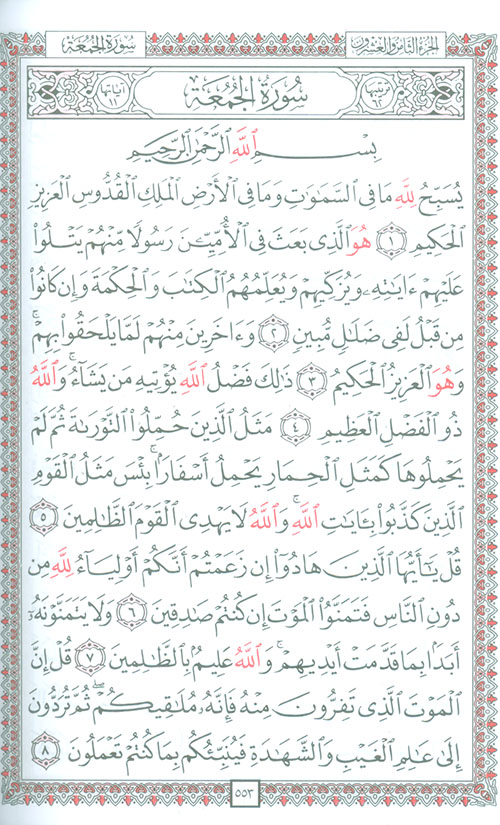 سُورَةُ الجُمُعَة
الجُزءُ الثَّامِنُ وَالعِشرُونَ
ترتيبها ٦٢
سُورَةُ الجُمُعَة
آياتها ١١
بِسْمِ ٱللَّهِ ٱلرَّحْمَٰنِ ٱلرَّحِيمِ
يُسَبِّحُ لِلَّهِ مَا فِي ٱلسَّمَٰوَٰتِ وَمَا فِي ٱلْأَرْضِ ٱلْمَلِكِ ٱلْقُدُّوسِ ٱلْعَزِيزِ
ٱلْحَكِيمِ ١ هُوَ ٱلَّذِي بَعَثَ فِي ٱلْأُمِّيِّـۧنَ رَسُولًا مِّنْهُمْ يَتْلُوا۟
عَلَيْهِمْ ءَايَٰتِهِۦ وَيُزَكِّيهِمْ وَيُعَلِّمُهُمُ ٱلْكِتَٰبَ وَٱلْحِكْمَةَ وَإِن كَانُوا۟
مِن قَبْلُ لَفِي ضَلَٰلٍ مُّبِينٍ ٢ وَءَاخَرِينَ مِنْهُمْ لَمَّا يَلْحَقُوا۟ بِهِمْ ۚ
وَهُوَ ٱلْعَزِيزُ ٱلْحَكِيمُ ٣ ذَٰلِكَ فَضْلُ ٱللَّهِ يُؤْتِيهِ مَن يَشَآءُ ۚ وَٱللَّهُ
ذُو ٱلْفَضْلِ ٱلْعَظِيمِ ٤ مَثَلُ ٱلَّذِينَ حُمِّلُوا۟ ٱلتَّوْرَىٰةَ ثُمَّ لَمْ
يَحْمِلُوهَا كَمَثَلِ ٱلْحِمَارِ يَحْمِلُ أَسْفَارًۢا ۚ بِئْسَ مَثَلُ ٱلْقَوْمِ
ٱلَّذِينَ كَذَّبُوا۟ بِـَٔايَٰتِ ٱللَّهِ ۚ وَٱللَّهُ لَا يَهْدِي ٱلْقَوْمَ ٱلظَّٰلِمِينَ ٥
قُلْ يَٰٓأَيُّهَا ٱلَّذِينَ هَادُوٓا۟ إِن زَعَمْتُمْ أَنَّكُمْ أَوْلِيَآءُ لِلَّهِ مِن
دُونِ ٱلنَّاسِ فَتَمَنَّوُا۟ ٱلْمَوْتَ إِن كُنتُمْ صَٰدِقِينَ ٦ وَلَا يَتَمَنَّوْنَهُۥٓ
أَبَدًۢا بِمَا قَدَّمَتْ أَيْدِيهِمْ ۚ وَٱللَّهُ عَلِيمٌۢ بِٱلظَّٰلِمِينَ ٧ قُلْ إِنَّ
ٱلْمَوْتَ ٱلَّذِي تَفِرُّونَ مِنْهُ فَإِنَّهُۥ مُلَٰقِيكُمْ ۖ ثُمَّ تُرَدُّونَ
إِلَىٰ عَٰلِمِ ٱلْغَيْبِ وَٱلشَّهَٰدَةِ فَيُنَبِّئُكُم بِمَا كُنتُمْ تَعْمَلُونَ ٨
٥٥٣